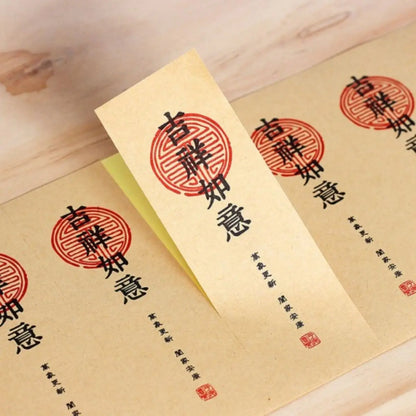 吉祥如意
萬象更新 闔家安康
吉祥如意
萬象更新 闔家安康
吉祥如意
萬象更新 闔家安康
吉祥如
意